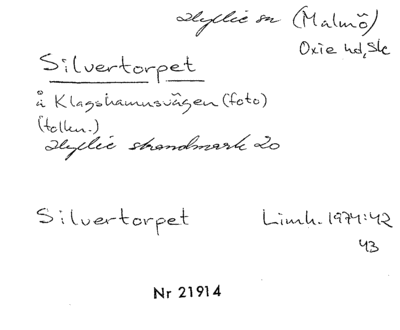 Hyllie sn (Malmö)
Oxie hd, Sk
Silvertorpet
å Klagshamnsvägen (foto)
(tolkn.)
Hyllie strandmark 20
Silvertorpet Limh. 1974:42
43
Nr 21914